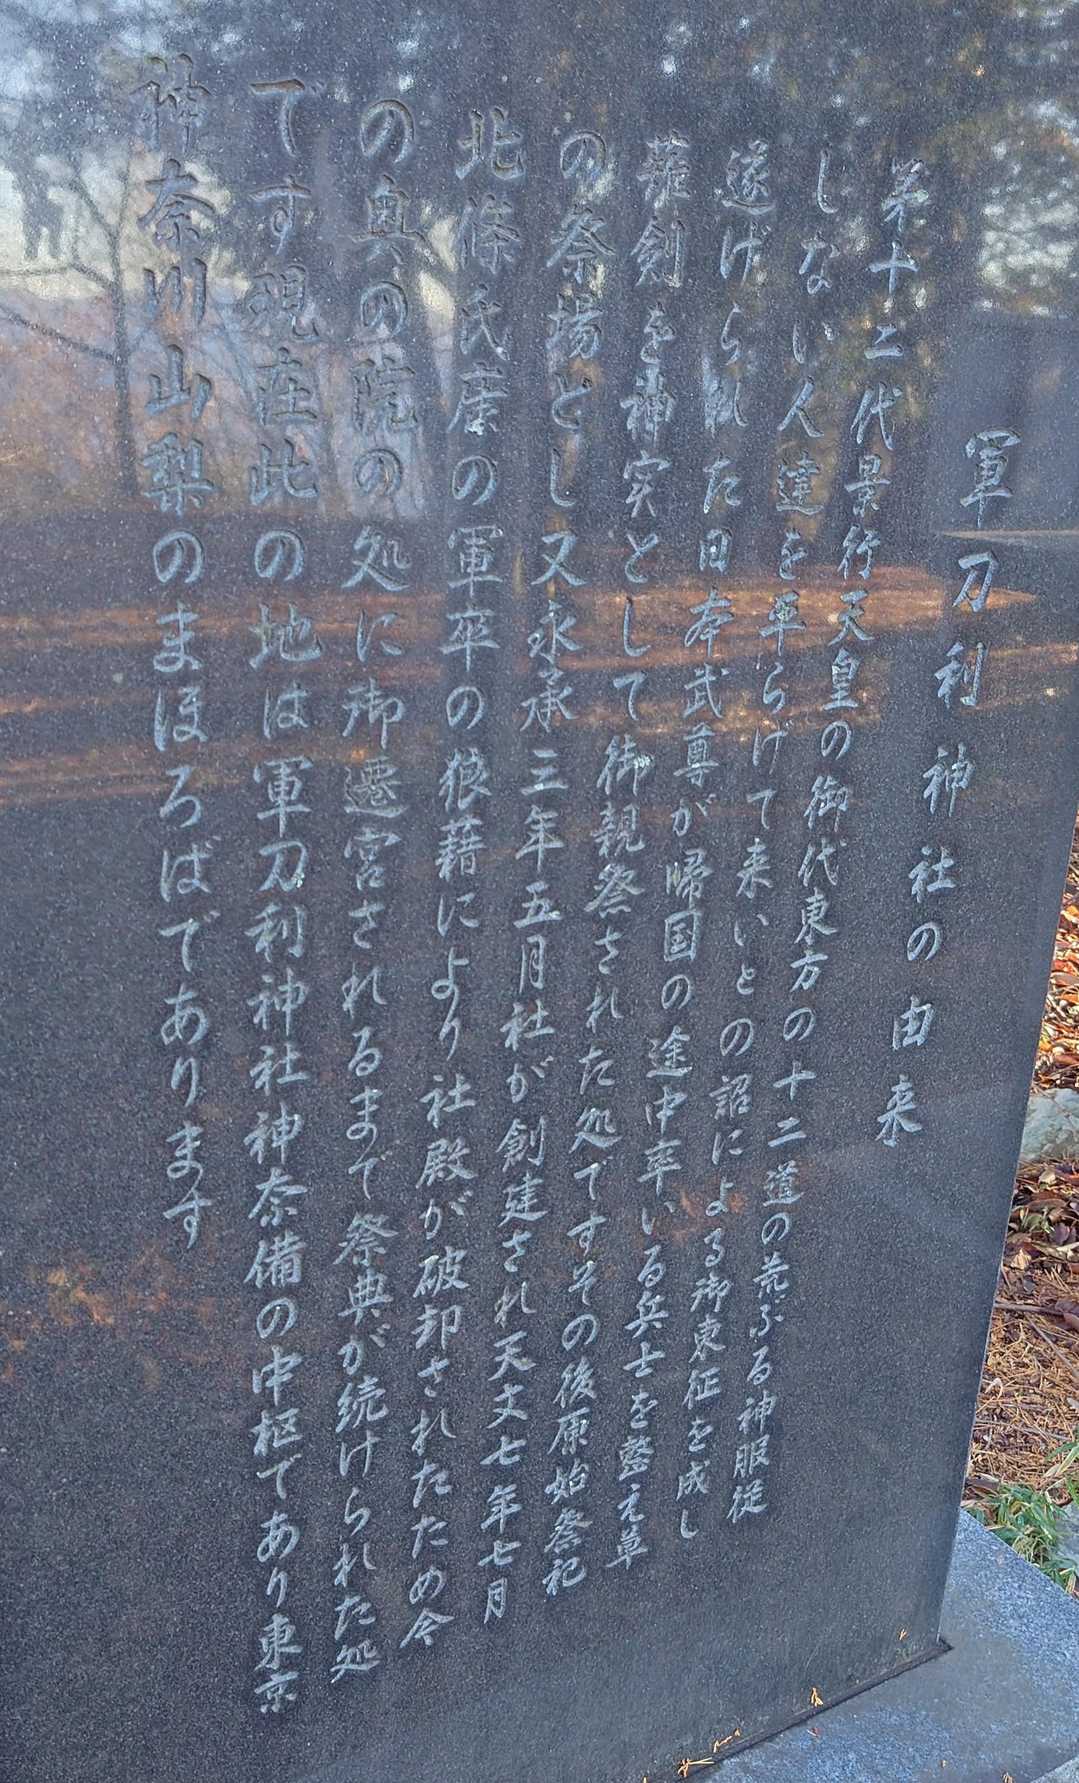 軍刀利神社の由来
第十二代景行天皇の御代東方の十二道の荒ぶる神服従
しない人達を平らげて来いとの詔による御東征を成し
遂げられた日本武尊が帰国の途中率いる兵士を整え草
薙剣を神実として御親祭された処ですその後原始祭祀
の祭場とし又永承三年五月社が創建され天文七年七月
北條氏康の軍卒の狼藉により社殿が破却されたため今
の奥の院の処に御遷宮されるまで祭典が続けられた処
です現在此の地は軍刀利神社神奈備の中枢であり東京
神奈川山梨のまほろばであります